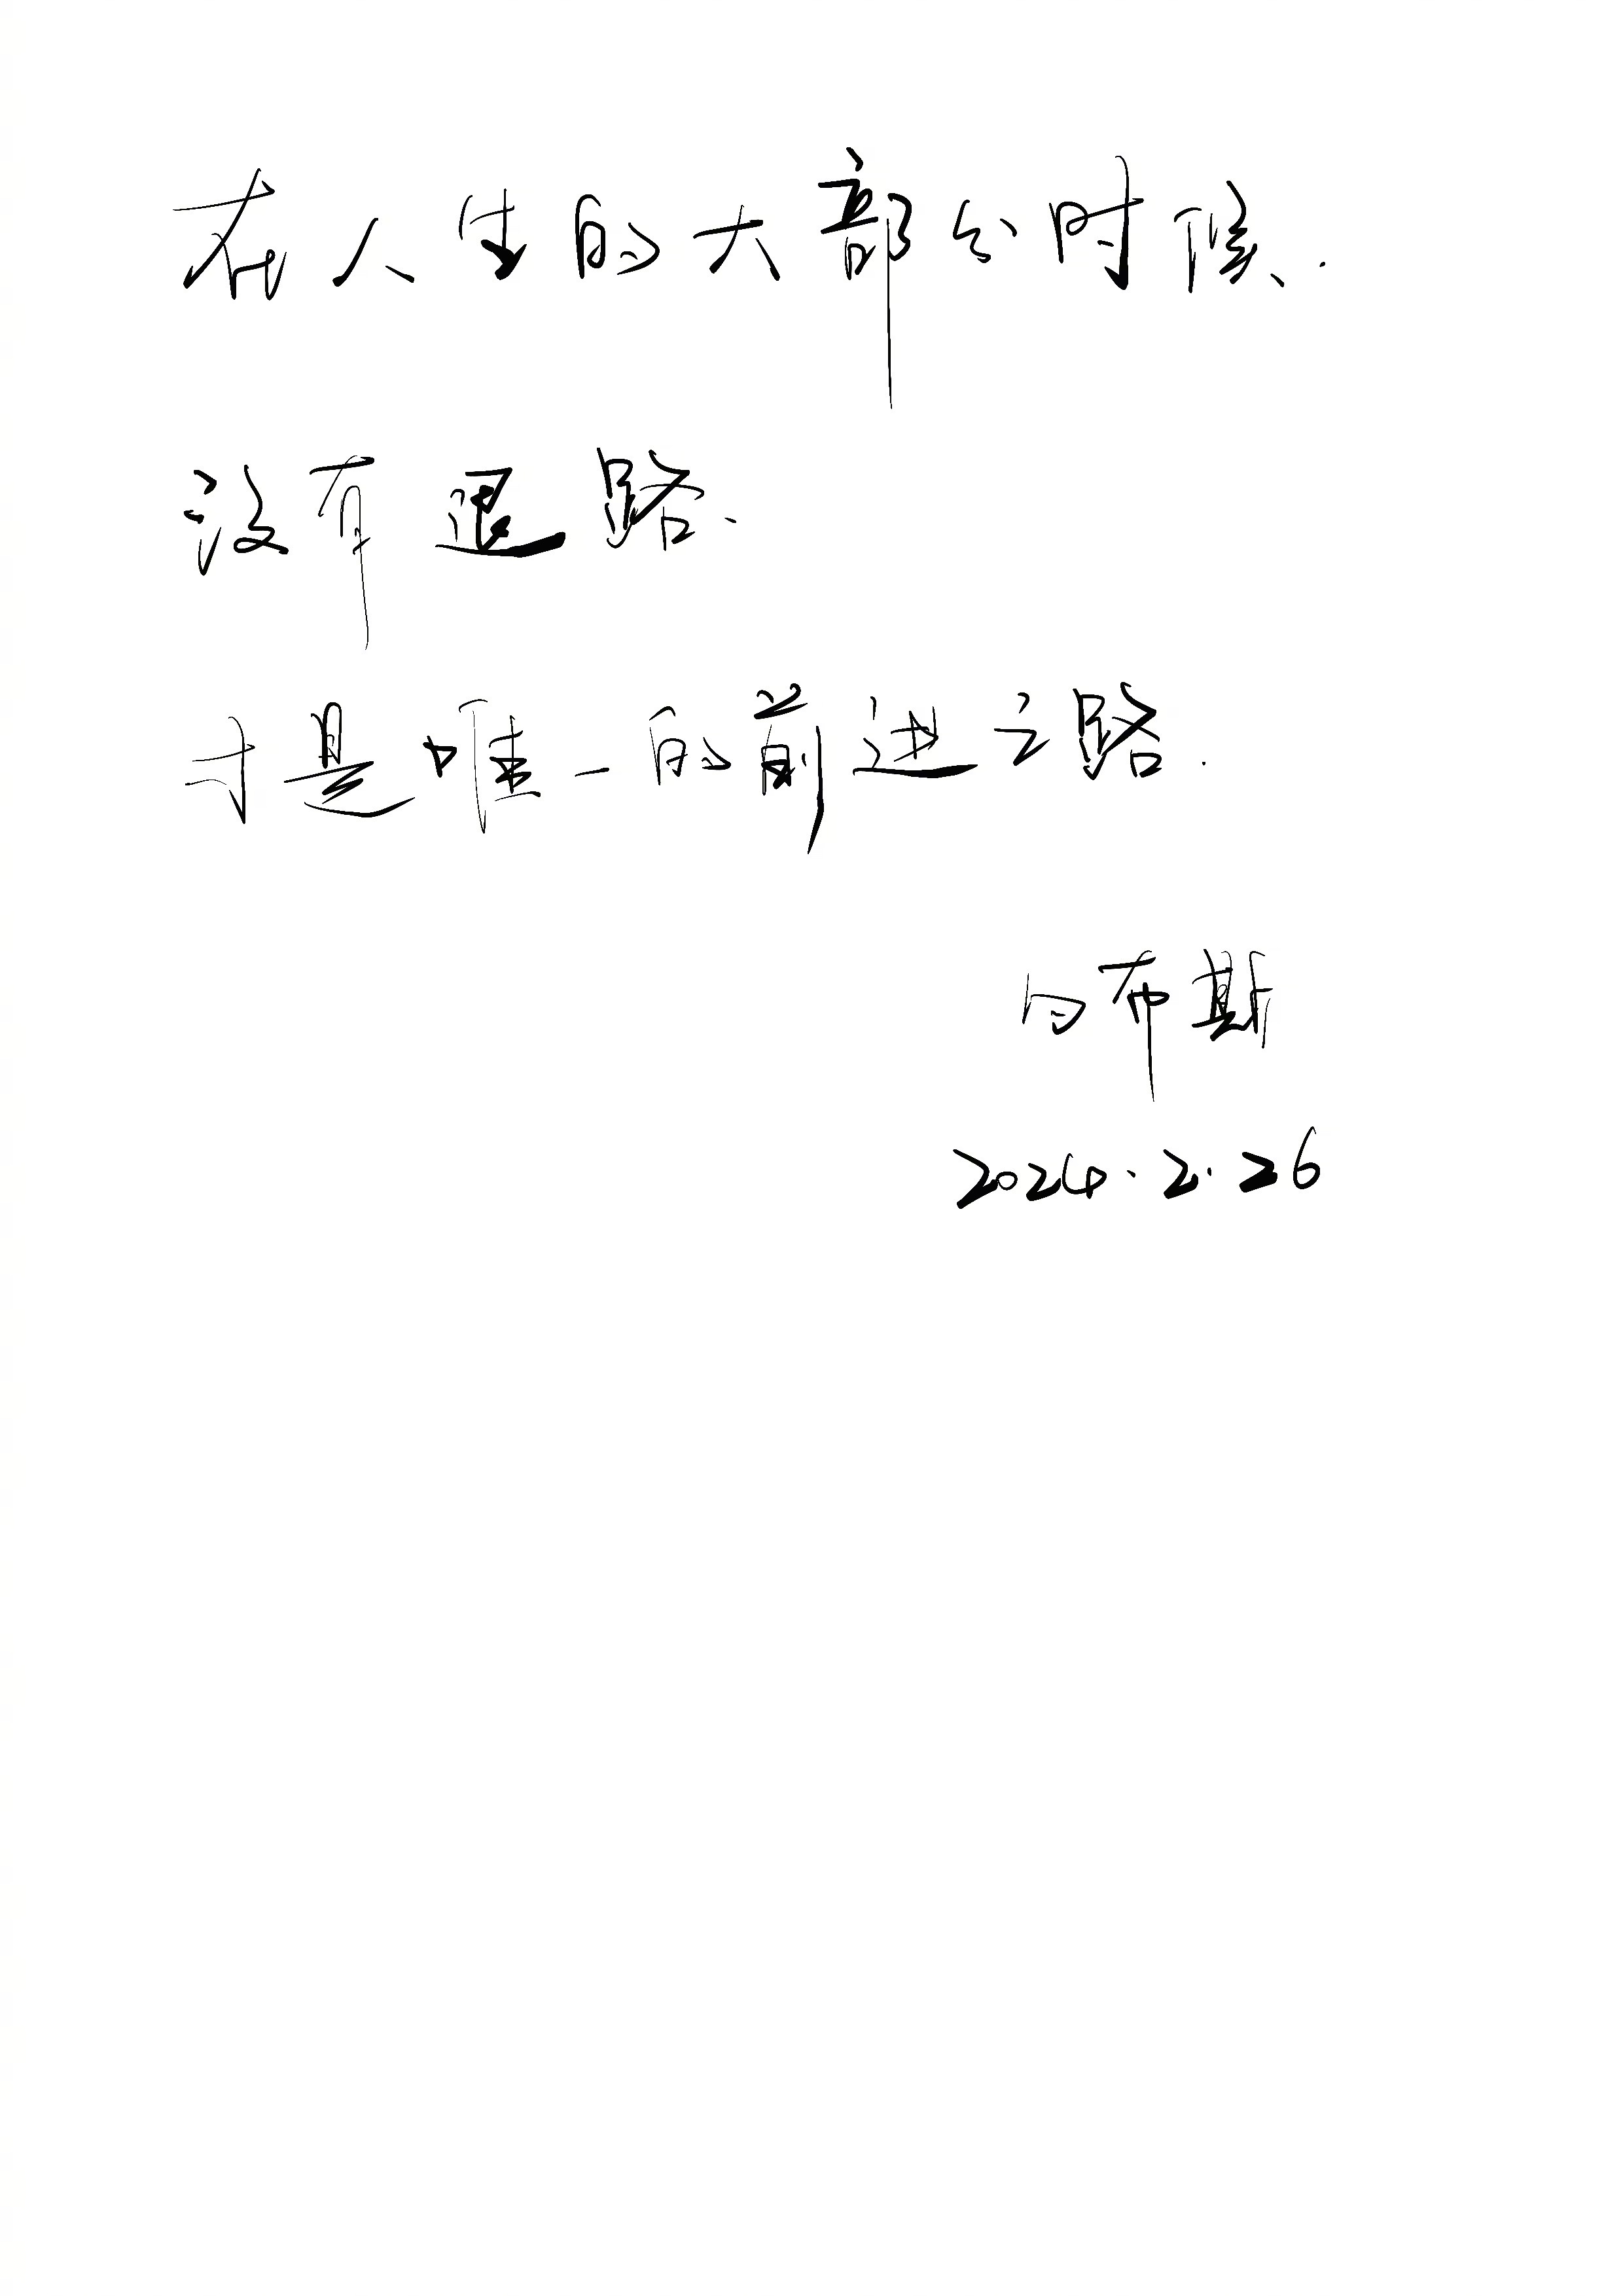 在人生的大部分时候.
没有退路、
才是唯一的前进之路.
布斯
2024.2.26